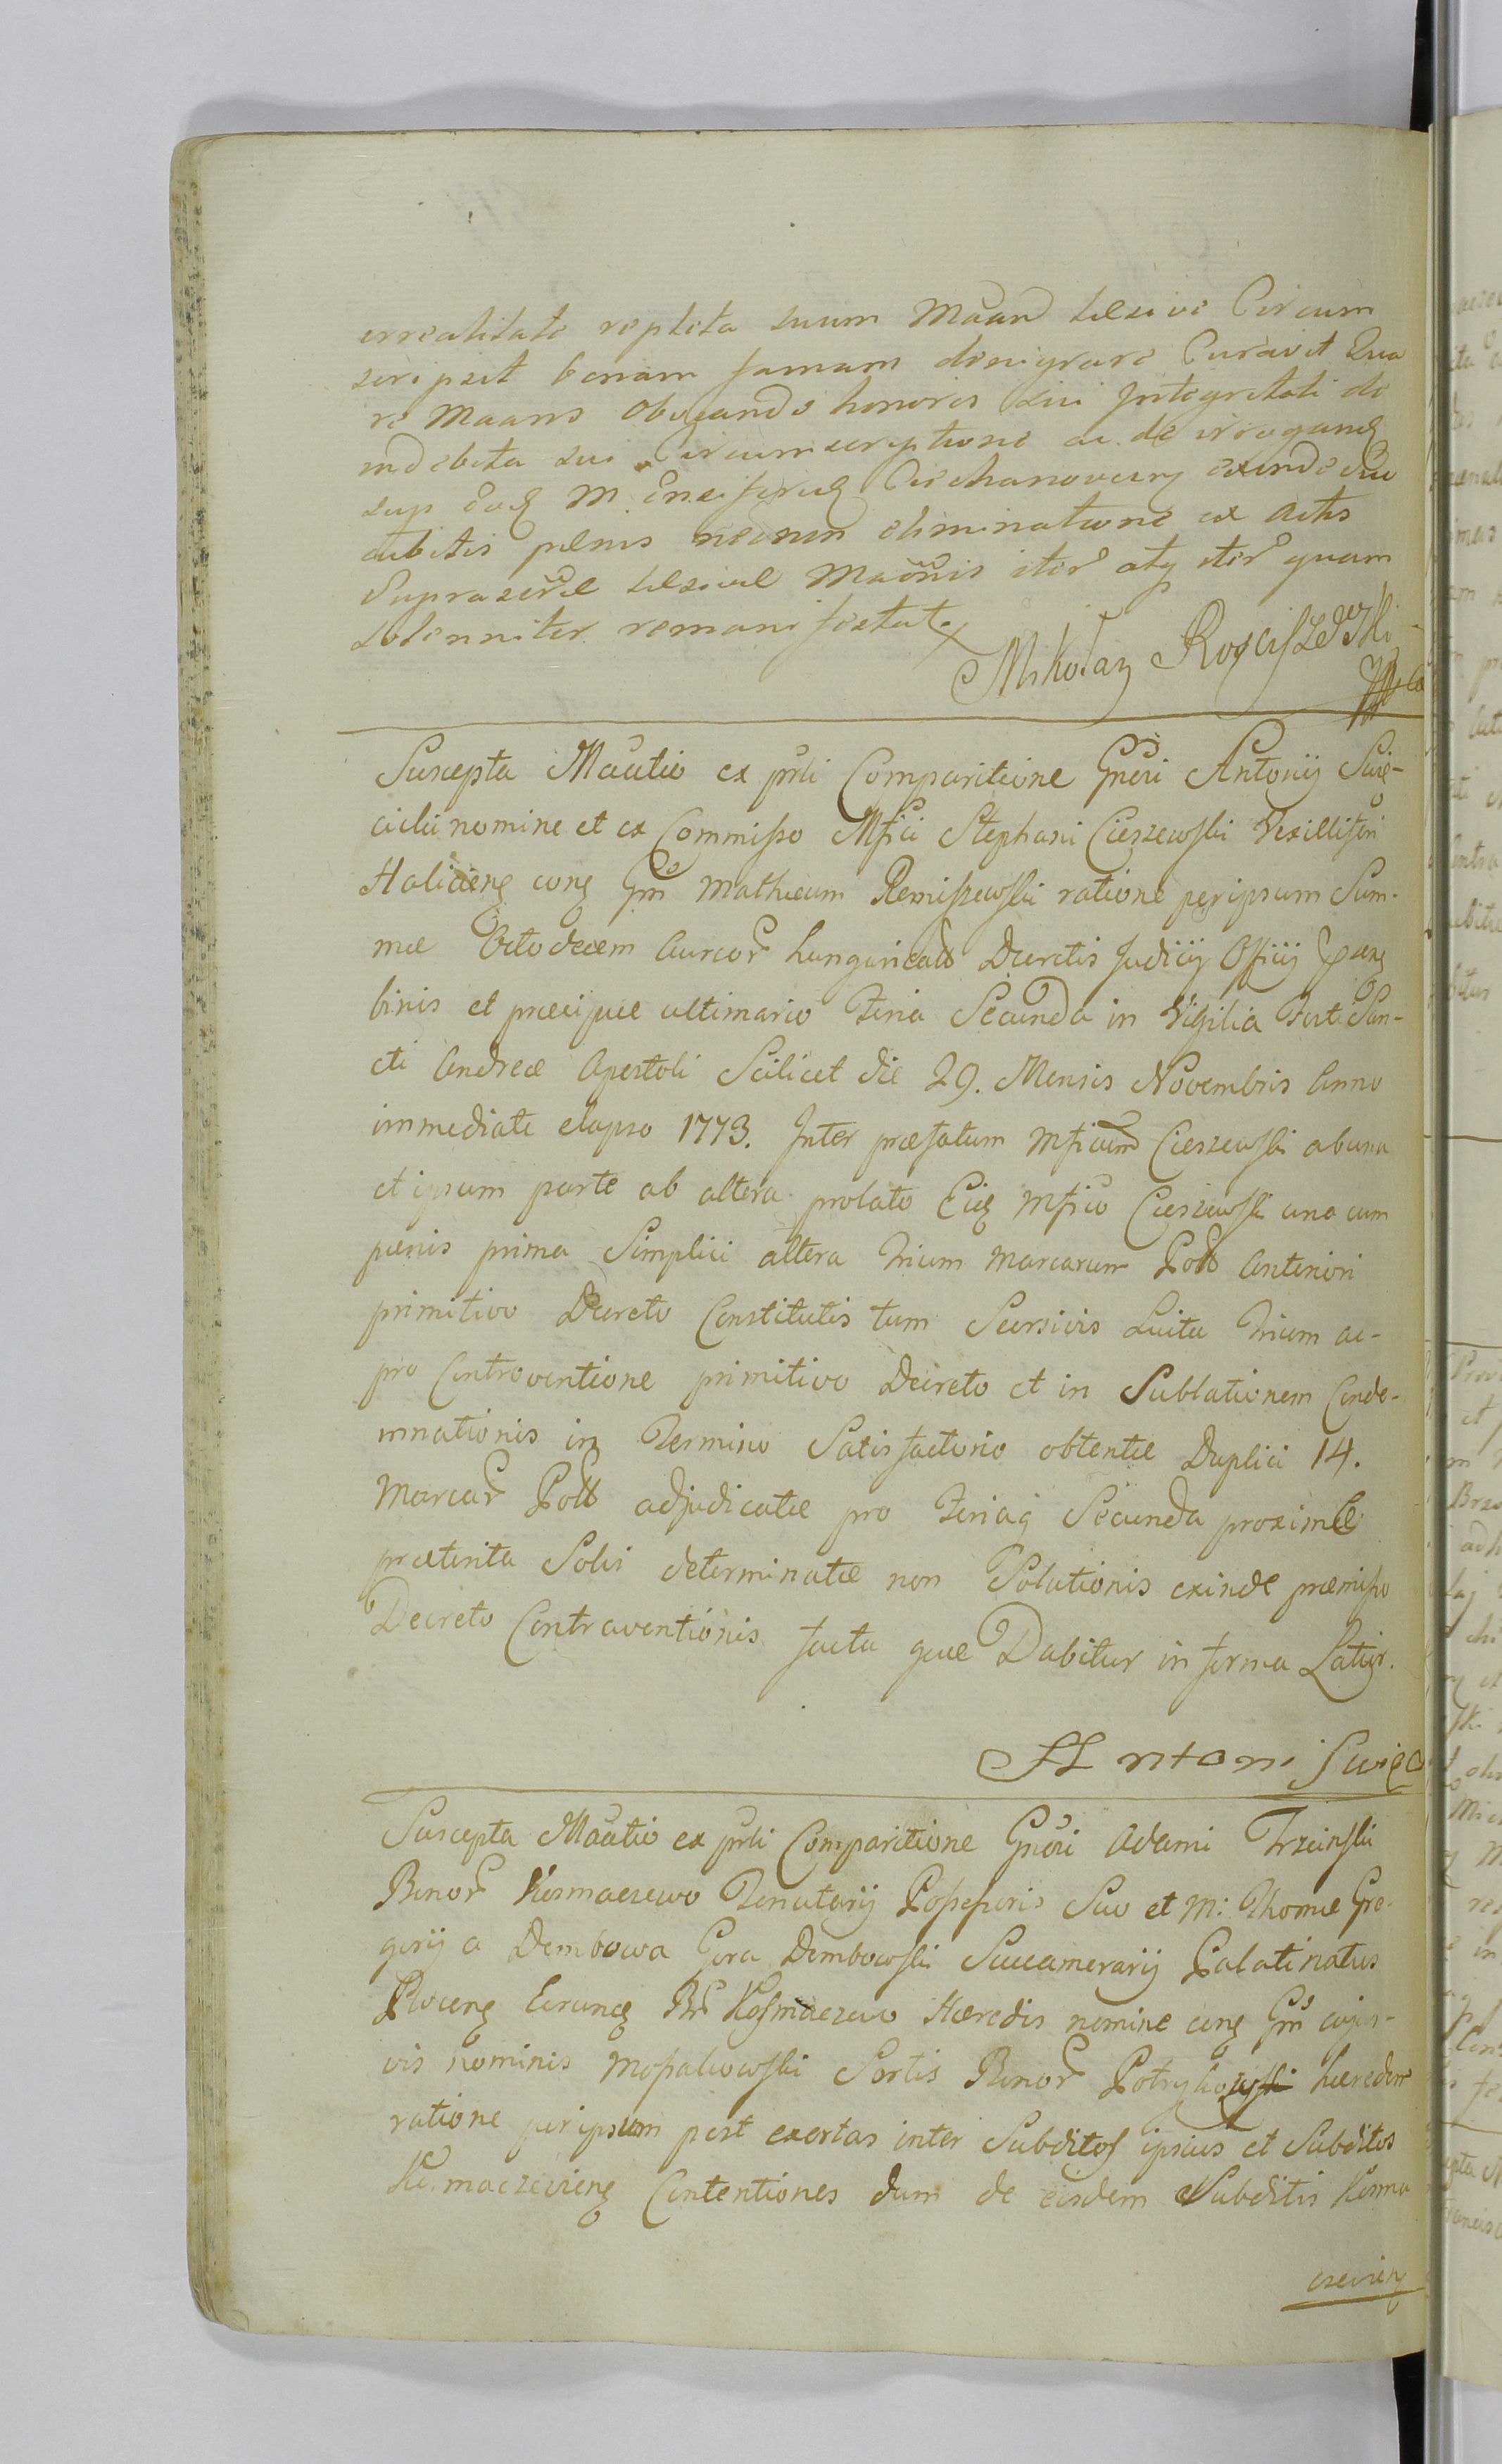 errealitate repleta suum Maand lesive Circum
scripsit bonam famam denigrare Curavit Qua
re Maans obviando honoris sui Integritati de
indebita sui Circumscriptione ac de irrogand
sup eod M. Ensiferid Ciechanoviens exinde
cubitis penis necnon eliminatione ex actis
Suprascr lesivae Maonis iter atq iter quam
solenniter remanifestat.
Mikołay Rosciszewski
Suscepta Maatio ex prli Comparitione Gnosi Antonij Swie-
cicki nomine et ex Commisso Mfici Stephani Cieszewski Vexilliferi
Haliciens cons Gm Mathieum Remiszewski ratione per ipsum Sum-
mae Octodecem Aureor hungarical Decretis Judicij Officij
binis et praecipue ultimario Feria Secunda in Vigilia Festi San-
cti Andreae Apostoli Scilicet die 29. Mensis Novembris Anno
immediate elapso 1773. Inter praefatum Mficum Cieszewski ab una
et ipsum parte ab altera prolato Eid Mfico Cieszewski una cum
paenis prima Simplici altera trium Marcarum Poll Anteriori
primitivo Decreto Constitutis tum Seorsivis Luita trium ac-
pro Contraventione primitivo Decreto et in Sublationem Conde-
mnationis in Termino Satisfactorio obtentae Duplici 14.
Marcar Poll adjudicatae pro Feriaq Secunda proxime
praeterita Solvi determinatae non Solutionis exinde praemisso
Decreto Contraventionis facta quae Dabitur in forma Latior.
Antoni Swięc
Suscepta Maatio ex prli Comparitione Gnosi Adami Trzcinski
Bonor Kosmaczewo Tenutarij Possessoris Suo et M: Thomae Gre-
gorij a Dembowa Gora Dembowski Succamerarij Palatinatus
Plocens Eorund Br Kosmaczewo Haeredis nomine cons Gm cujus-
vis nominis Mossakowski Sortis Bonor Potrykozy haeredem
ratione per ipsum post exortas inter Subditos ipsius et Subditos
Kosmaczeviens Contentiones dum de eisdem Subditis Kosma
czeviens